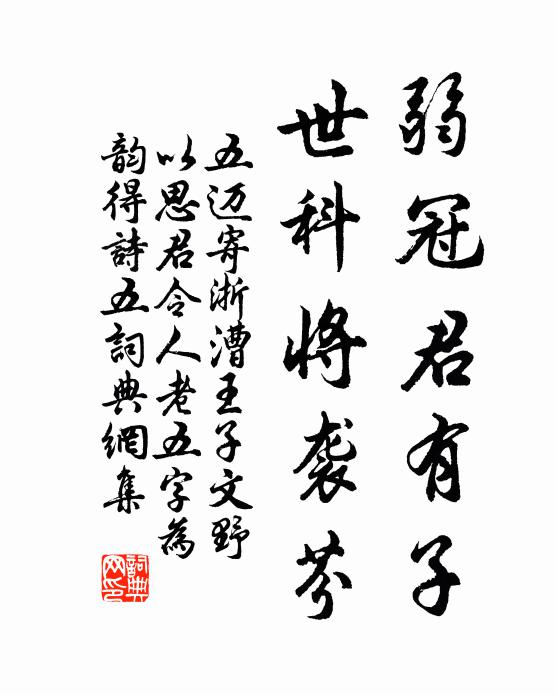 弱冠君有子
世科将袭芬
五迈寄浙漕王子文野
以思君令人老五字為
韵得詩五詞典網集
詞典网印